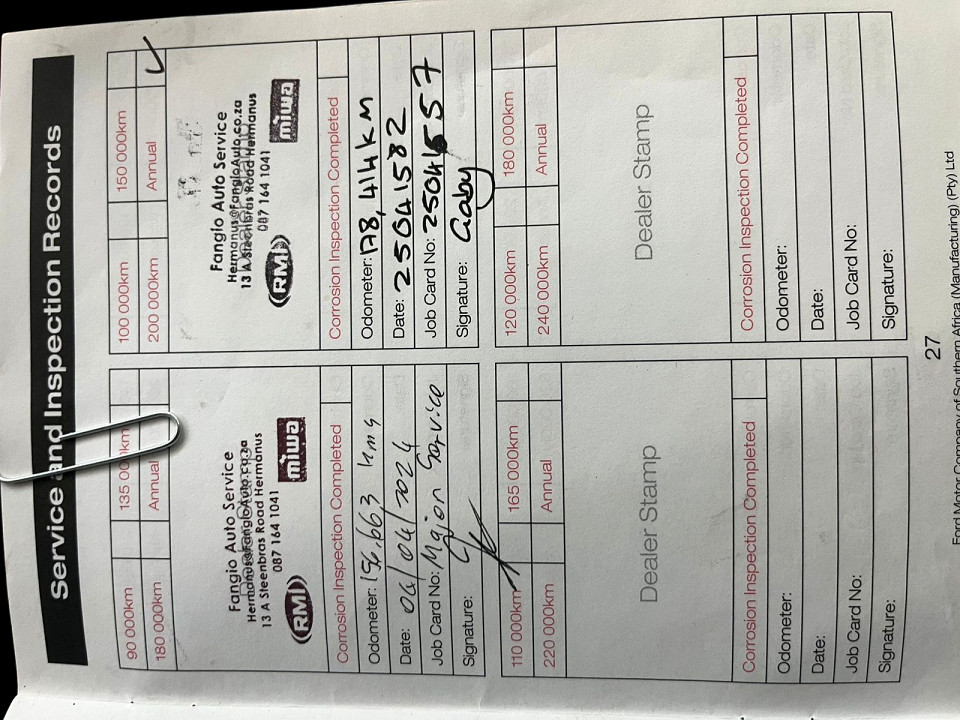 Service and Inspection Records
90 000km 135 000km
180 000km Annual
Fangio Auto Service
Hermanus@FangioAuto.co.za
13 A Steenbras Road Hermanus
087 164 1041
RMI miwa
Corrosion Inspection Completed
Odometer: 156,663 kms
Date: 04/04/2024
Job Card No: Major Service
Signature:
100 000km 150 000km
200 000km Annual ✓
Fangio Auto Service
Hermanus@FangioAuto.co.za
13 A Steenbras Road Hermanus
087 164 1041
RMI miwa
Corrosion Inspection Completed
Odometer: 178,414KM
Date: 25041582
Job Card No: 25041557
Signature: Gaby
110 000km 165 000km
220 000km Annual
Dealer Stamp
Corrosion Inspection Completed
Odometer:
Date:
Job Card No:
Signature:
120 000km 180 000km
240 000km Annual
Dealer Stamp
Corrosion Inspection Completed
Odometer:
Date:
Job Card No:
Signature:
27
Ford Motor Company of Southern Africa (Manufacturing) (Pty) Ltd